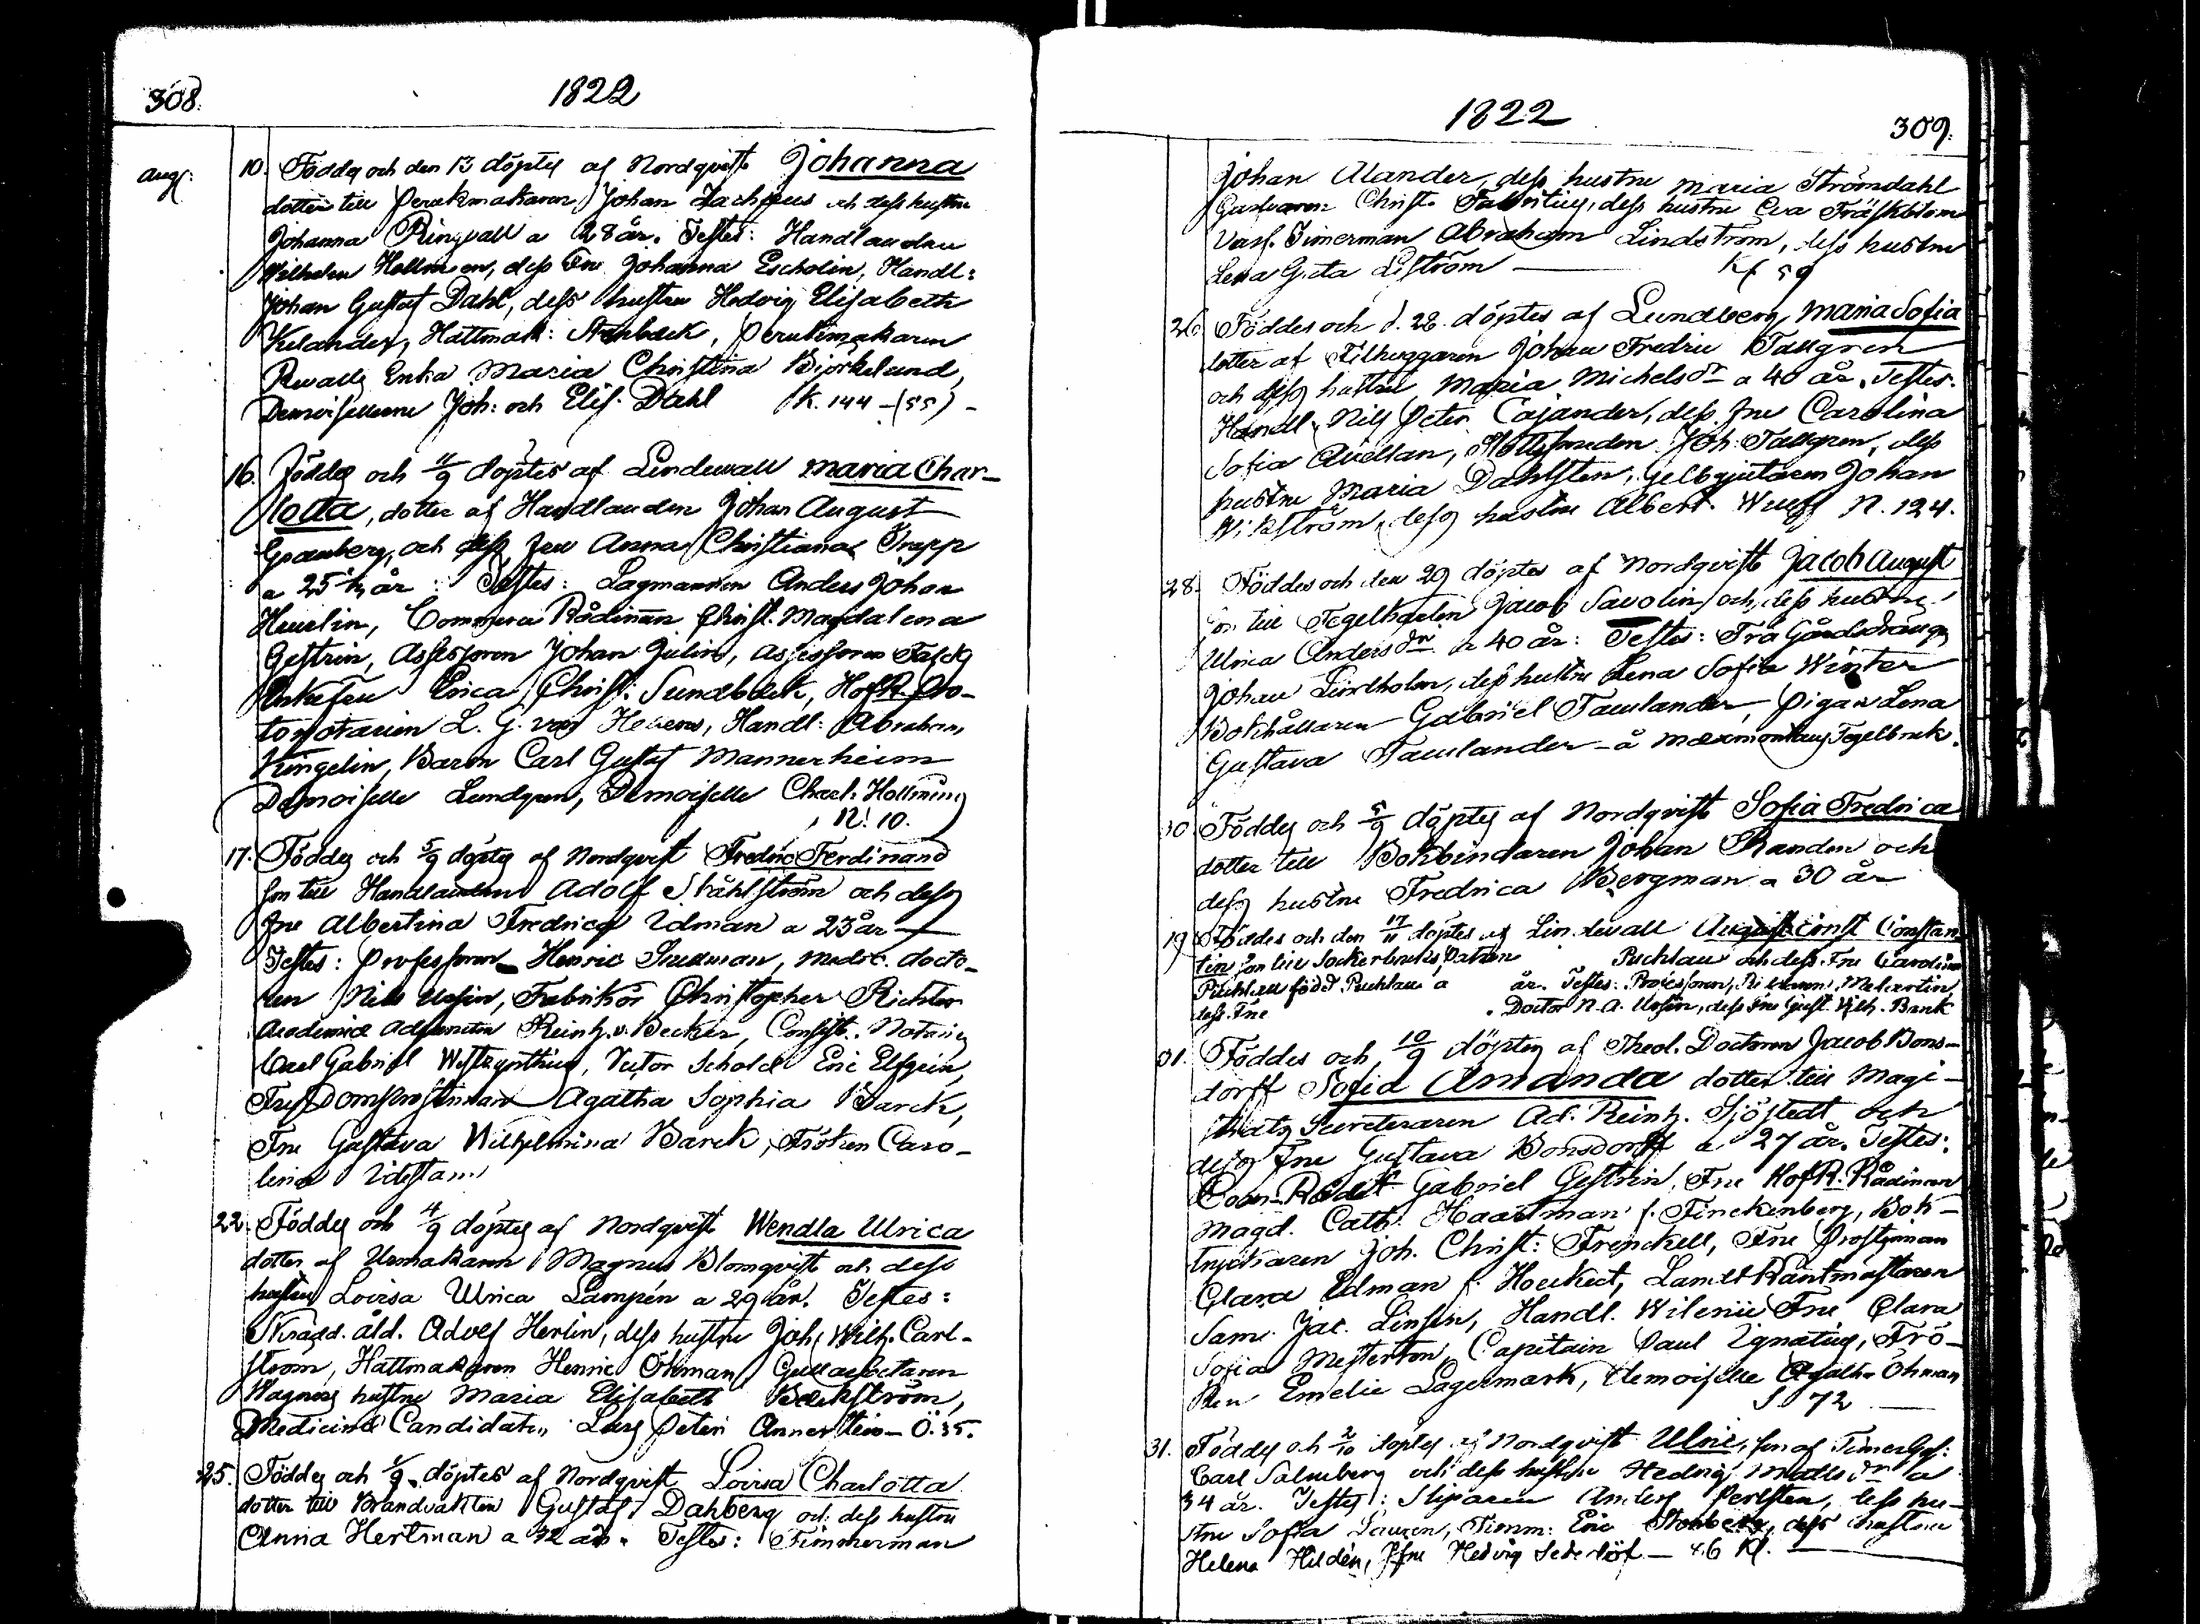 308.
1822
Aug:
10. Föddes och den 13 döptes af Nordqvist Johanna
dotter till Perukmakaren Johan Zachæus och dess hustru
Johanna Ringvall a 28 år. Testes: Handlanden
Wilhelm Hollmen, dess Fru Johanna Escholin, Handl:
Johan Gustaf Dahl, dess hustru Hedvig Elisabeth
Kelander, Hattmak: Perukmakaren
Enka Maria Christina Björkelund,
Demoisellerne Joh: och Elis. Dahl K. 144 - (55) -
16. Föddes och 11/9 döptes af Lindewall Maria Char-
lotta, dotter af Handlanden Johan August
Granberg, och dess Fru Anna Christiana Trapp
a 25 ½ år: Testes: Lagmannen Anders Johan
Heurlin, Commerce Rådinnan Christ. Magdalena
Gestrin, Assessoren Johan Julin, Assessoren
Enkefru Erica Christ. Sundbäck, HofR. Pro-
tonotarien L. G. von Hæven, Handl: Abraham
Kingelin, Baron Carl Gustaf Mannerheim
Demoiselle Lundgren, Demoiselle Charl. Hollming
N! 10.
17. Föddes och 5/9 döptes af Nordqvist Fredric Ferdinand
son till Handlanden Adolf Ståhlström och dess
Fru Albertina Fredrica Idman a 23 år
Testes: Professoren Henric Snellman, Medic. docto-
ren Nils Ursin, Fabrikör Christopher Richter
Academiæ Adjuncten Reinh. v. Becker, Consist. Notarien
Carl Gabriel Westzynthius, Rector Scholæ Eric Elfgrén,
Fru Domprostinnan Agatha Sophia Barck,
Fru Gustava Wilhelmina Barck, Fröken Caro-
lina Idestam
22. Föddes och 4/9 döptes af Nordqvist Wendla Ulrica
dotter af Urmakaren Magnus Blomqvist och dess
hustru Lovisa Ulrica Lampén a 29 år. Testes:
Skrädd. åld. Adolf Herlin, dess hustru Joh. Wilh. Carl-
ström, Hattmakaren Henric Öhman, Gullarbetaren
Wagners hustru Maria Elisabeth Bäckström,
Medicinæ Candidaten Lars Peter Annerstein - Ö. 35.
25. Föddes och 1/9 döptes af Nordqvist Lovisa Charlotta
dotter till Brandvakten Gustaf Dahlberg och dess hustru
Anna Hertman a 42 år. Testes: Timmerman
1822
309.
Johan Alander, dess hustru Maria Strömdahl
Garfvaren Christ. dess hustru Eva Träskblom
Varfs Timerman Abraham Lindström, dess hustru
Lena Greta Liström Kl 59
26. Föddes och d. 28. döptes af Lundberg Maria Sofia
dotter af Filhuggaren Johan Fredric Tallgren
och dess hustru Maria Michelsdr a 40 år. Testes:
Handl. Nils Peter Cajander, dess Fru Carolina
Sofia Avellan, Joh. Tallgren, dess
hustru Maria Dahlsten, Gelbgjutaren Johan
Wikström, dess hustru Albert. Wulff N. 124.
28. Föddes och den 29 döptes af Nordqvist Jacob August
son till Tegelkarlen Jacob Savolin och dess hustru
Ulrica Andersdr a 40 år: Testes: Frö Gårdsdrängen
Johan Lindholm, dess hustru Lena Sofia Winter
Bokhållaren Gabriel Tamlander, Pigan Lena
Gustava Tamlander - å Maxmontans Tegelbruk.
30. Föddes och 5/9 döptes af Nordqvist Sofia Fredrica
dotter till Bokbindaren Johan Randen och
dess hustru Fredrica Bergman a 30 år
19 Föddes och den 17/11 döptes af Lindewall August Ernst Constan-
tin son till Sockerbruks Patron Puchlau och dess Fru Carolina
Puchlau född Puchlau a år. Testes: Professoren, Riddaren, Melartin
dess Fru . Doctor N. A. Ursin, dess Fru Gust. Wilh. Barck
31. Föddes och 10/9 döptes af Theol. Doctoren Jacob Bons-
dorff Sofia Amanda dotter till Magi-
strats Secreteraren Ad. Reinh. Sjöstedt och
dess Fru Gustava Bonsdorff a 27 år. Testes:
Com-Rådet Gabriel Gestrin, Fru HofR. Rådinnan
Magd. Cath. Haartman f. Finckenberg, Bok-
tryckaren Joh. Christ: Frenckell, Fru Prostinnan
Clara Idman f. Hoeckert, Landt Räntmästaren
Sam. Jac. Linsén, Handl. Wilenii Fru Clara
Sofia Mesterton, Capitain Paul Ignatius, Frö-
ken Emelie Lagermark, Demoiselle Agatha Öhman
S 72
31. Föddes och 2/10 döptes af Nordqvist Ulric, son af Timer Ges:
Carl Salmberg och dess hustru Hedvig Mattsdr a
34 år. Testes: Sliparen Anders Perlsten, dess hu-
stru Sofia Lauren, Timm: Eric Stenberg, dess hustru
Helena Hildén, Jfru Hedvig Sederlöf - 46 Kl.